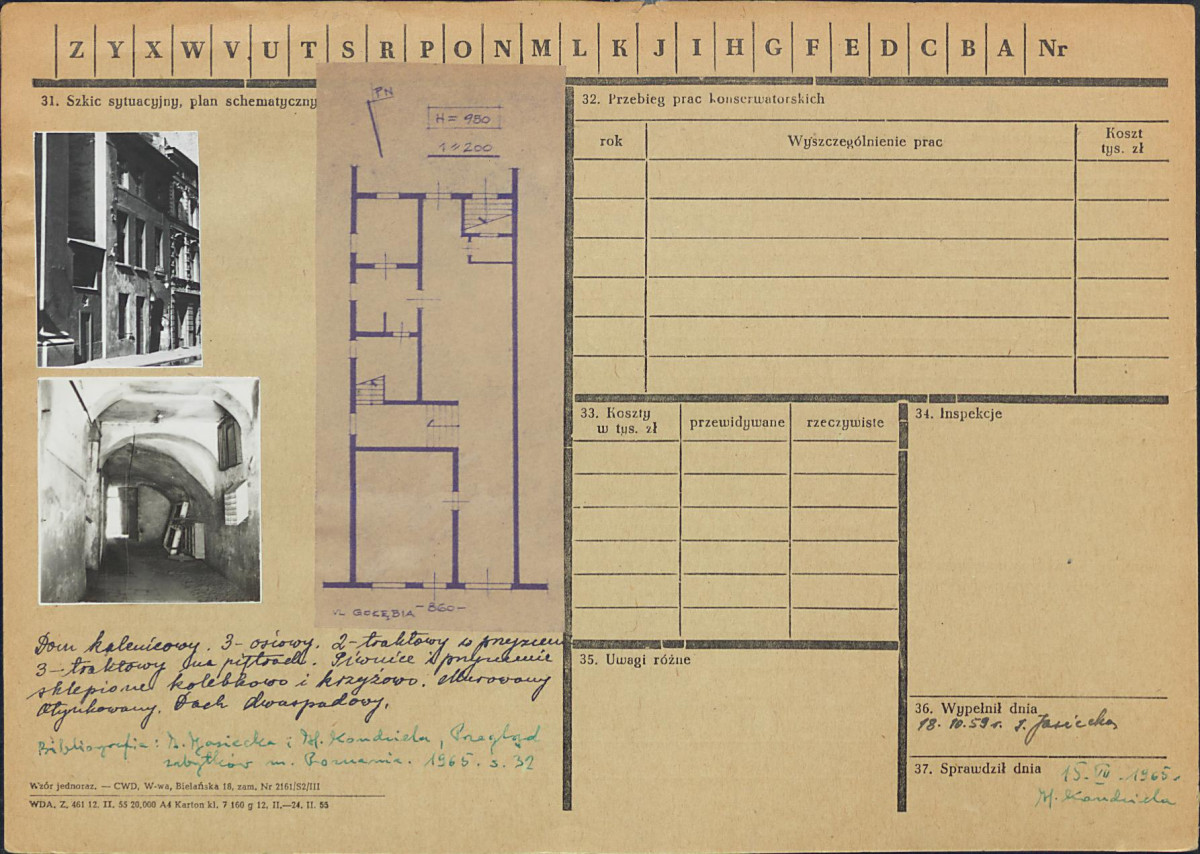 Z Y X W V U T S R P O N M L K J I H G F E D C B A Nr
31. Szkic sytuacyjny, plan schematyczny
PN
H = 980
1:200
UL GOŁĘBIA -860-
Dom kalenicowy. 3-osiowy. 2-traktowy w przyziemiu
3-traktowy na piętrach. Piwnice i przyziemie
sklepione kolebkowo i krzyżowo. Murowany
Otynkowany. Dach dwuspadowy.
Bibliografia: i M. Kondziela, Przegląd
zabytków m. Poznania. 1965. s. 32
Wzór jednoraz. — CWD, W-wa, Bielańska 18, zam. Nr 2161/S2/III
WDA. Z. 461 12. II. 55 20.000 A4 Karton kl. 7 160 g 12. II.—24. II. 55
32. Przebieg prac konserwatorskich
rok
Wyszczególnienie prac
Koszt
tys. zł
33. Koszty
w tys. zł
przewidywane
rzeczywiste
34. Inspekcje
35. Uwagi różne
36. Wypełnił dnia
18.10.59 r. J. Jasiecka
37. Sprawdził dnia 15. IV. 1965.
M. Kondziela